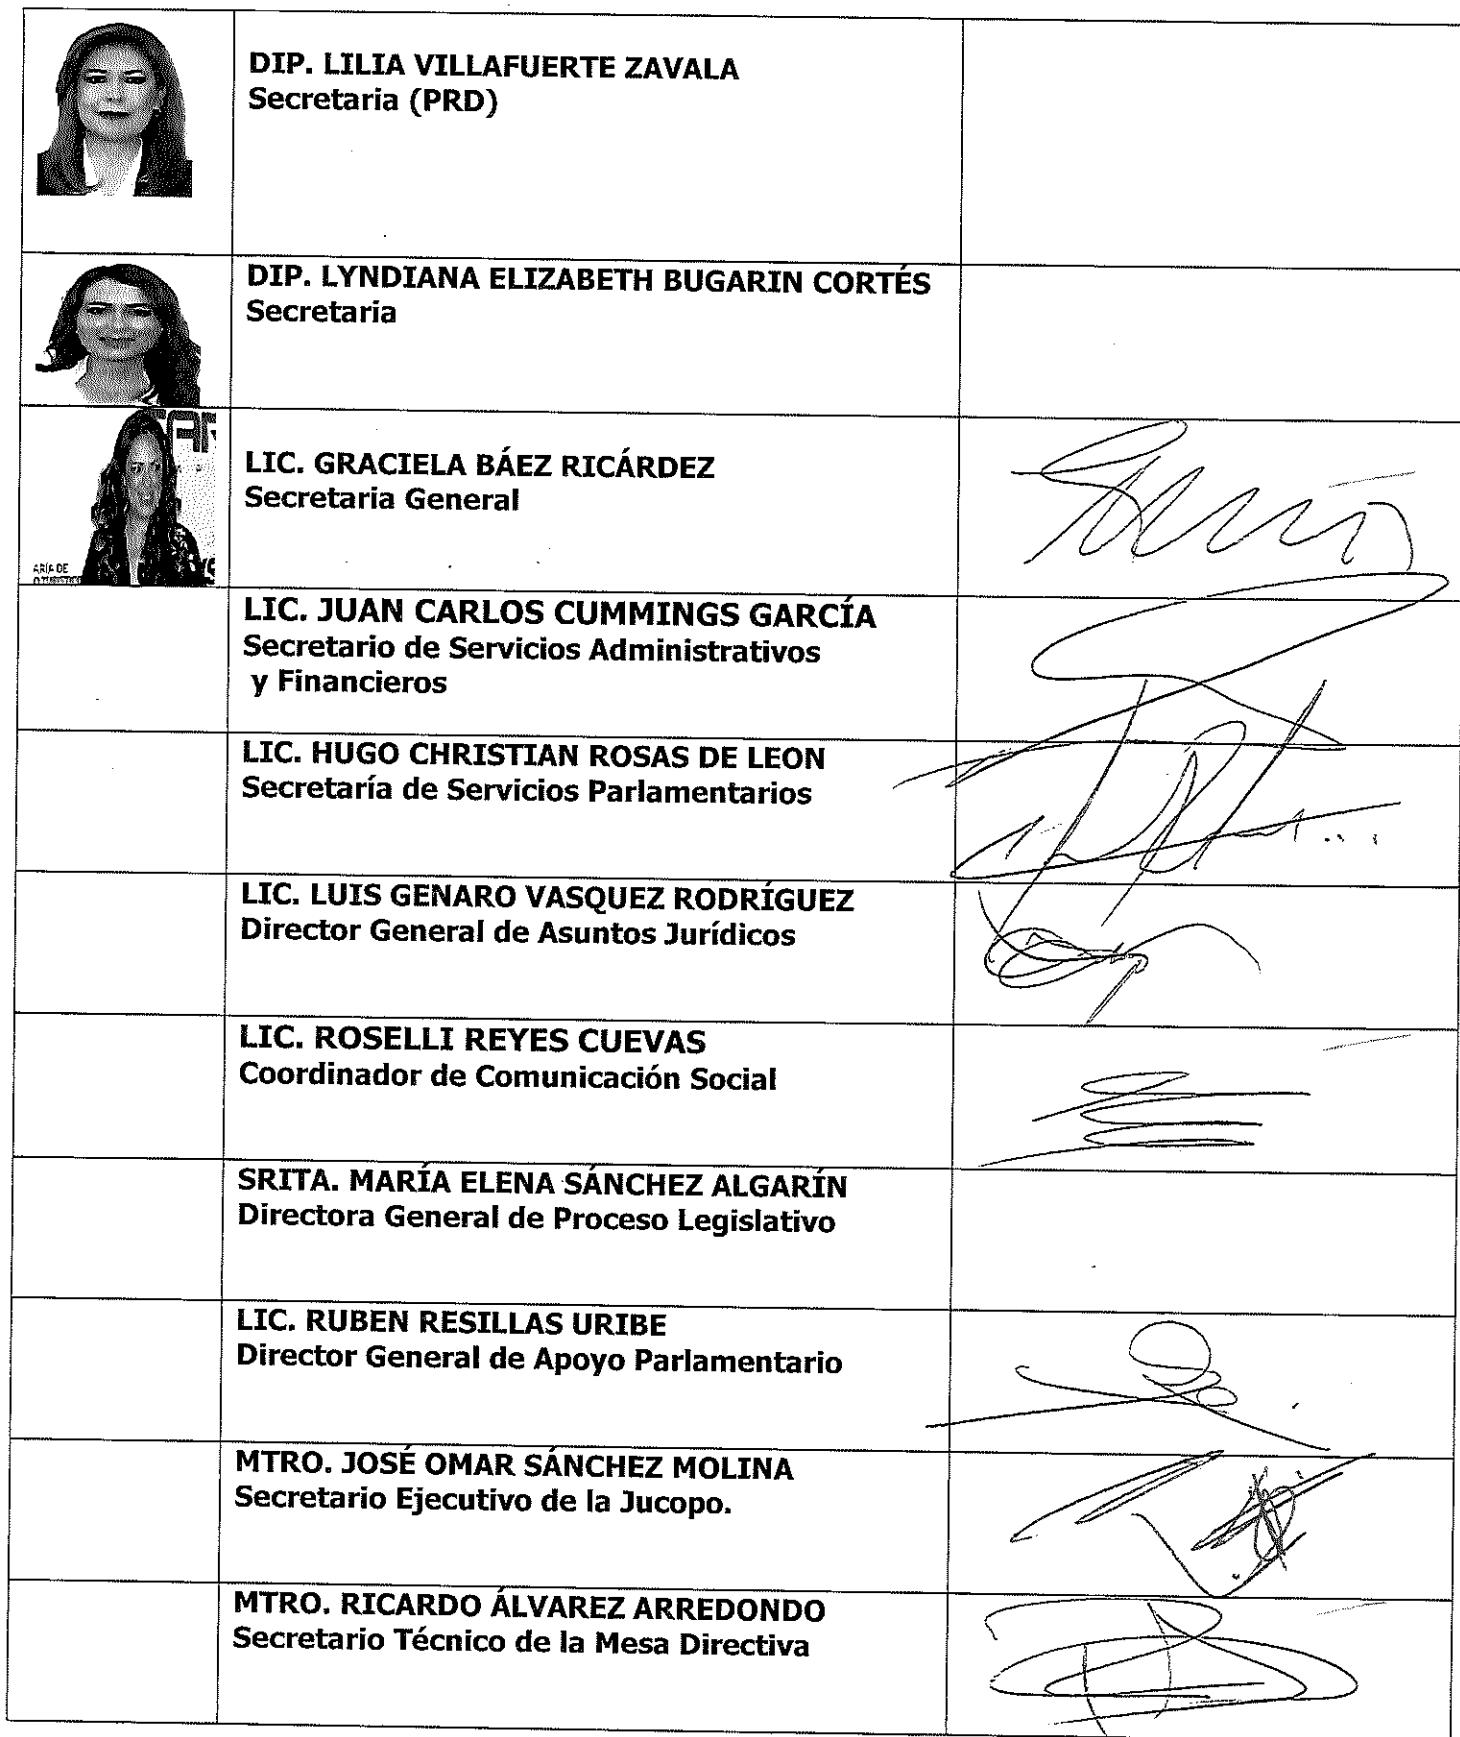 DIP. LILIA VILLAFUERTE ZAVALA
Secretaria (PRD)
DIP. LYNDIANA ELIZABETH BUGARIN CORTÉS
Secretaria
ARÍA DE
LIC. GRACIELA BÁEZ RICÁRDEZ
Secretaria General
LIC. JUAN CARLOS CUMMINGS GARCÍA
Secretario de Servicios Administrativos
y Financieros
LIC. HUGO CHRISTIAN ROSAS DE LEON
Secretaría de Servicios Parlamentarios
LIC. LUIS GENARO VASQUEZ RODRÍGUEZ
Director General de Asuntos Jurídicos
LIC. ROSELLI REYES CUEVAS
Coordinador de Comunicación Social
SRITA. MARÍA ELENA SÁNCHEZ ALGARÍN
Directora General de Proceso Legislativo
LIC. RUBEN RESILLAS URIBE
Director General de Apoyo Parlamentario
MTRO. JOSÉ OMAR SÁNCHEZ MOLINA
Secretario Ejecutivo de la Jucopo.
MTRO. RICARDO ÁLVAREZ ARREDONDO
Secretario Técnico de la Mesa Directiva